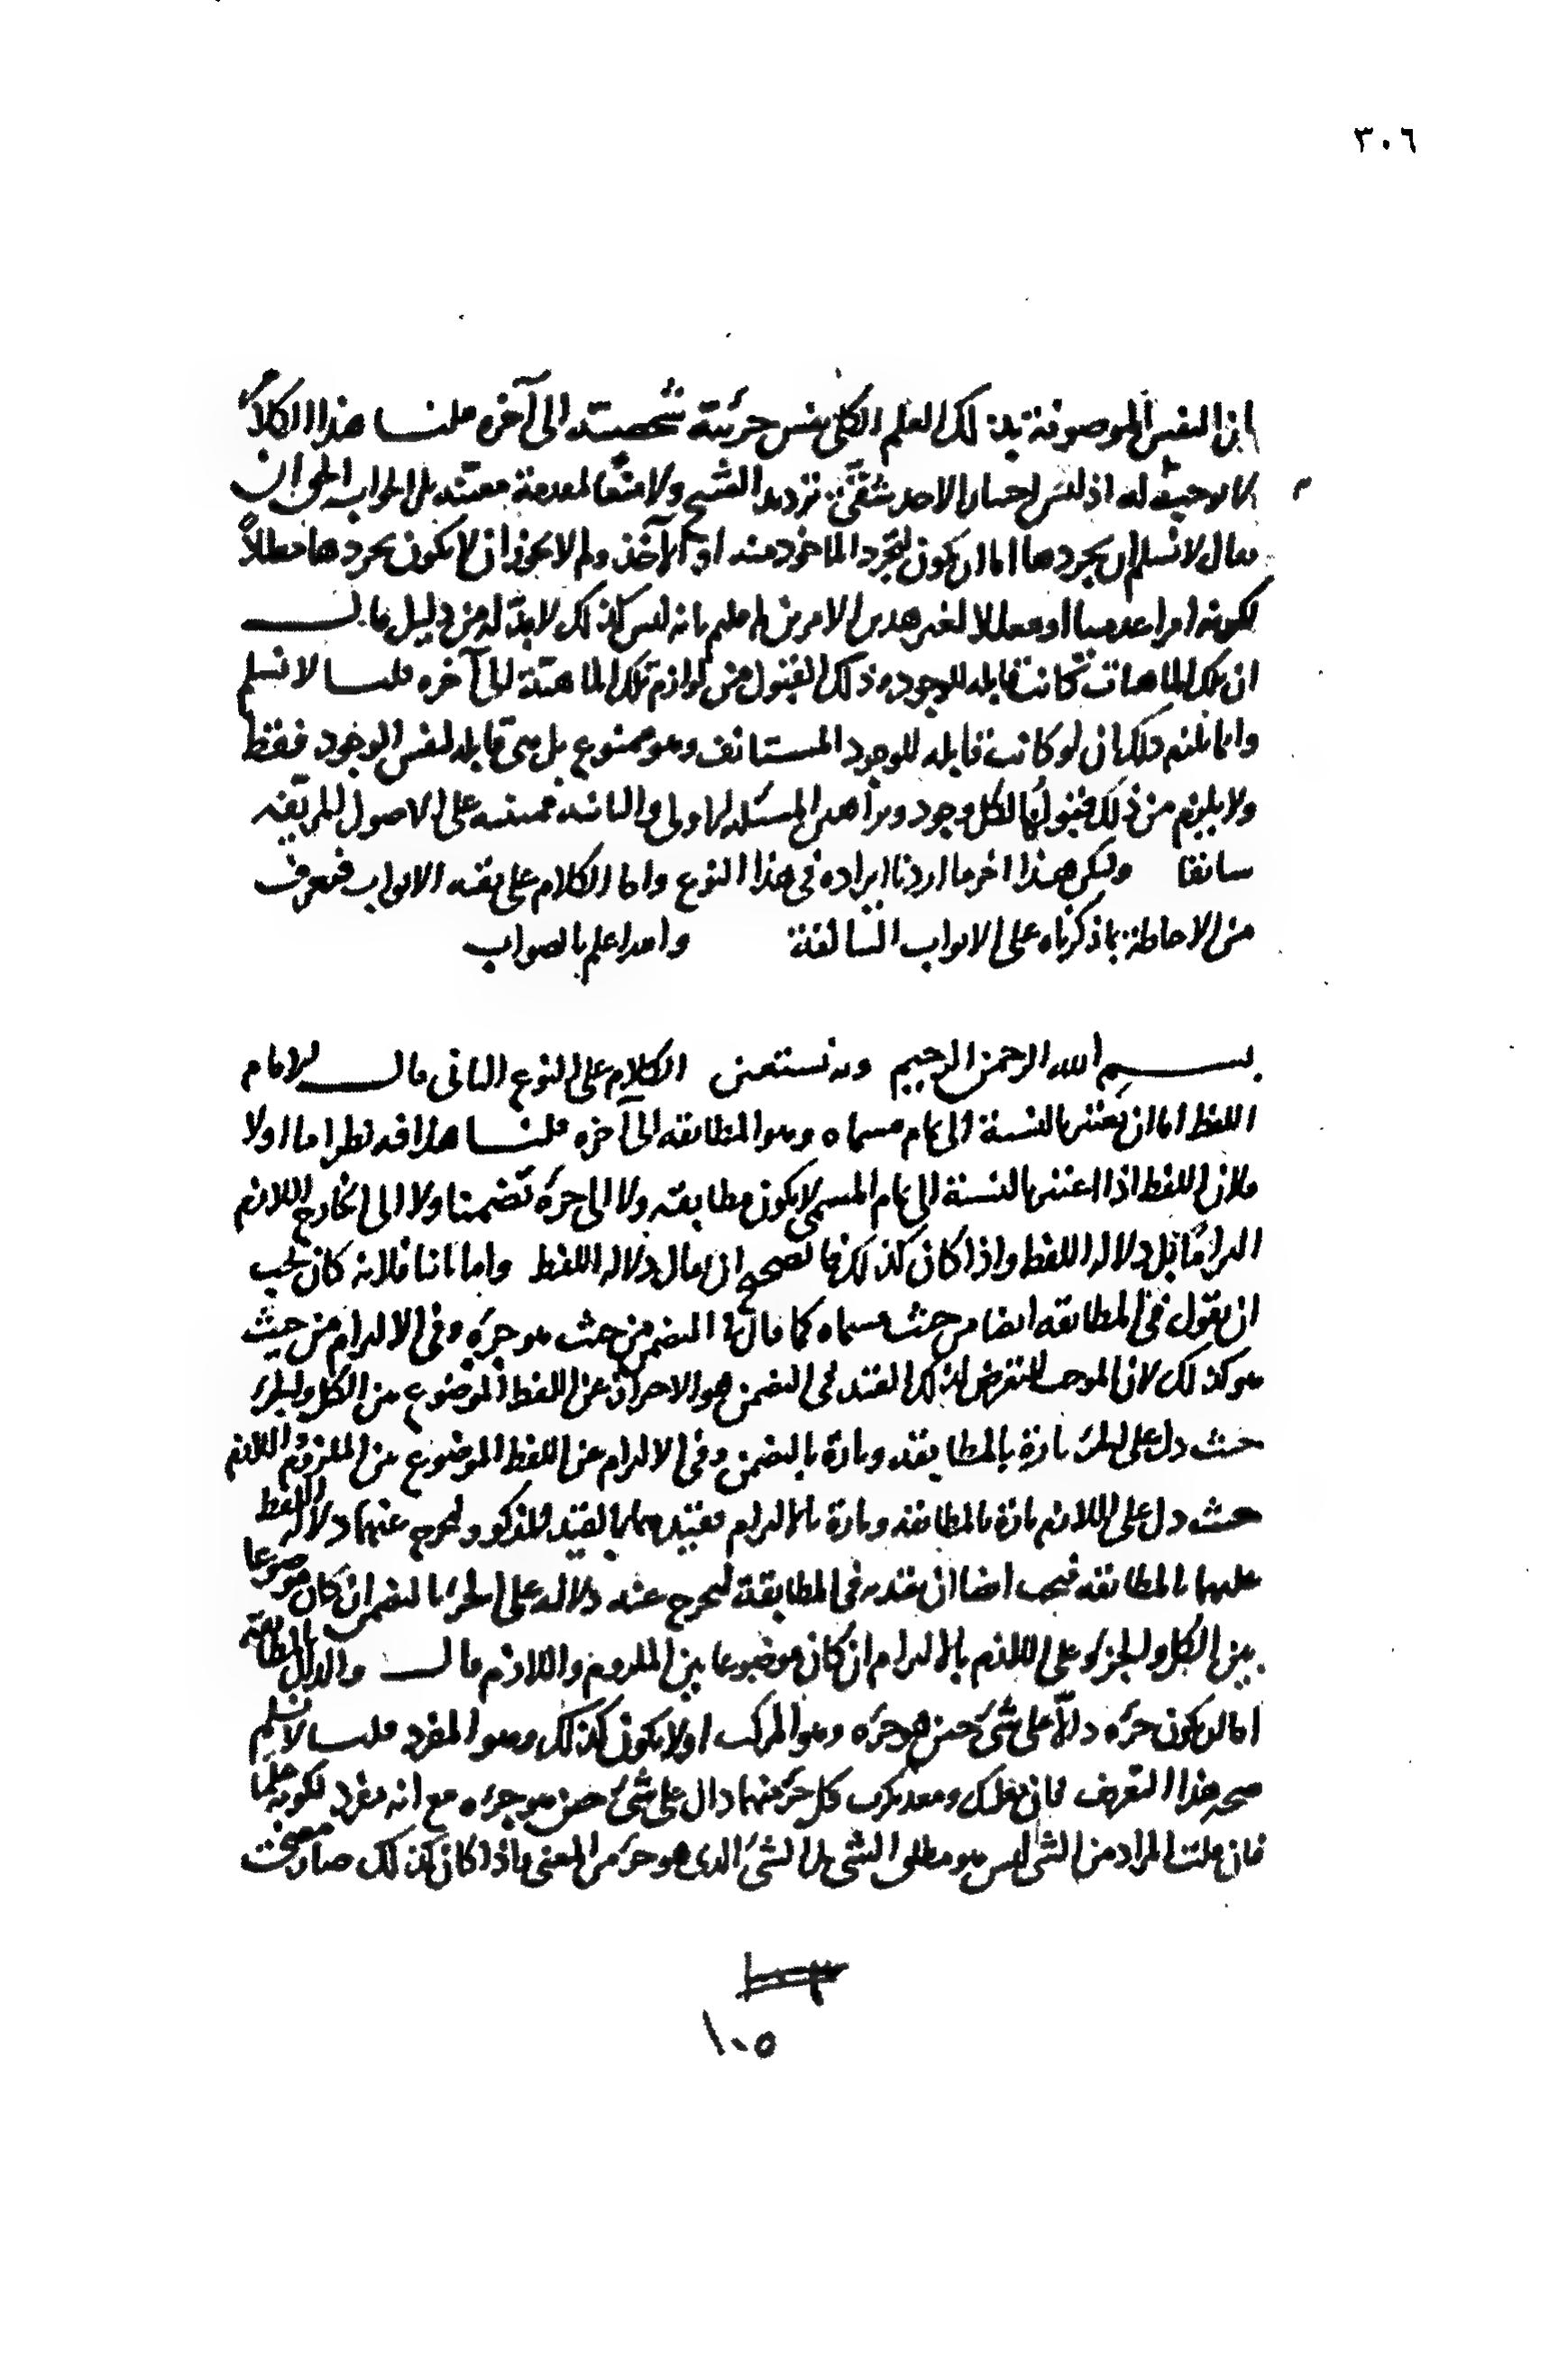 ٣٠٦
ان النفس الموصوفة بذلك العلم الكلي نفس جزئية شخصية الى آخره قلنا هذا الكلام
لا توجيه له اذ ليس اختيارا لاحد شقي ترديد الشيخ ولا منعا لمقدمة معينة بل الجواب الحق ان
يقال لا نسلم ان تجردها اما ان يكون لتجرد الماخوذ منه او الآخذ ولم لا يجوز ان لا يكون تجردها معللا
لكونه امرا عدميا او معللا لغير هذين الامرين لم قلتم بانه ليس كذلك لا بد له من دليل قال
ان تلك الماهيات كانت قابلة للوجود وذلك القبول من لوازم تلك الماهية الى آخره قلنا لا نسلم
وانما يلزم ذلك ان لو كانت قابلة للوجود المستانف وهو ممنوع بل هي قابلة لنفس الوجود فقط
ولا يلزم من ذلك قبولها لكل وجود وهذه المسئلة الاولى والثانية مبنية على الاصول المزيفة
سالفا وليكن هذا اخر ما اردنا ايراده في هذا النوع واما الكلام على بقية الابواب فيعرف
من الاحاطة بما ذكرناه على الابواب السالفة والله اعلم بالصواب
بسم الله الرحمن الرحيم وبه نستعين الكلام على النوع الثاني قال الامام
اللفظ اما ان يعتبر بالنسبة الى تمام مسماه وهو المطابقة الى آخره قلنا هذا فيه نظر اما اولا
فلان اللفظ اذا اعتبر بالنسبة الى تمام المسمى لا يكون مطابقة ولا الى جزءه تضمنا ولا الى الخارج اللازم
التزاما بل دلالة اللفظ واذا كان كذلك فالصحيح ان يقال دلالة اللفظ واما ثانيا فلانه كان يجب
ان يقول في المطابقة ايضا من حيث هو مسماه كما قال في التضمن من حيث هو جزءه وفي الالتزام من حيث
هو كذلك لان الموجب للتعرض لذلك القيد في التضمن هو الاحتراز عن اللفظ الموضوع بين الكل والجزء
حيث دل على الجزء تارة بالمطابقة وتارة بالتضمن وفي الالتزام عن اللفظ الموضوع بين الملزوم واللازم
حيث دل على اللازم تارة بالمطابقة وتارة بالالتزام فقيدهما بالقيد المذكور ليخرج عنهما دلالة اللفظ
عليهما بالمطابقة فيجب ايضا ان يقيد به في المطابقة ليخرج عنه دلالته على الجزء بالتضمن ان كان موضوعا
بين الكل والجزء وعلى اللازم بالالتزام ان كان موضوعا بين الملزوم واللازم قال والدال بالمطابقة
اما ان يكون جزءه دالا على شئ حين هو جزءه وهو المركب او لا يكون كذلك وهو المفرد قلنا لا نسلم
صحة هذا التعريف فان بعلبك ومعديكرب كل جزء منهما دال على شئ حين هو جزءه مع انه مفرد لكونه علما
فان قلت المراد من الشئ ليس هو مطلق الشئ بل الشئ الذي هو جزء من المعنى واذا كان كذلك صار
١٠٥